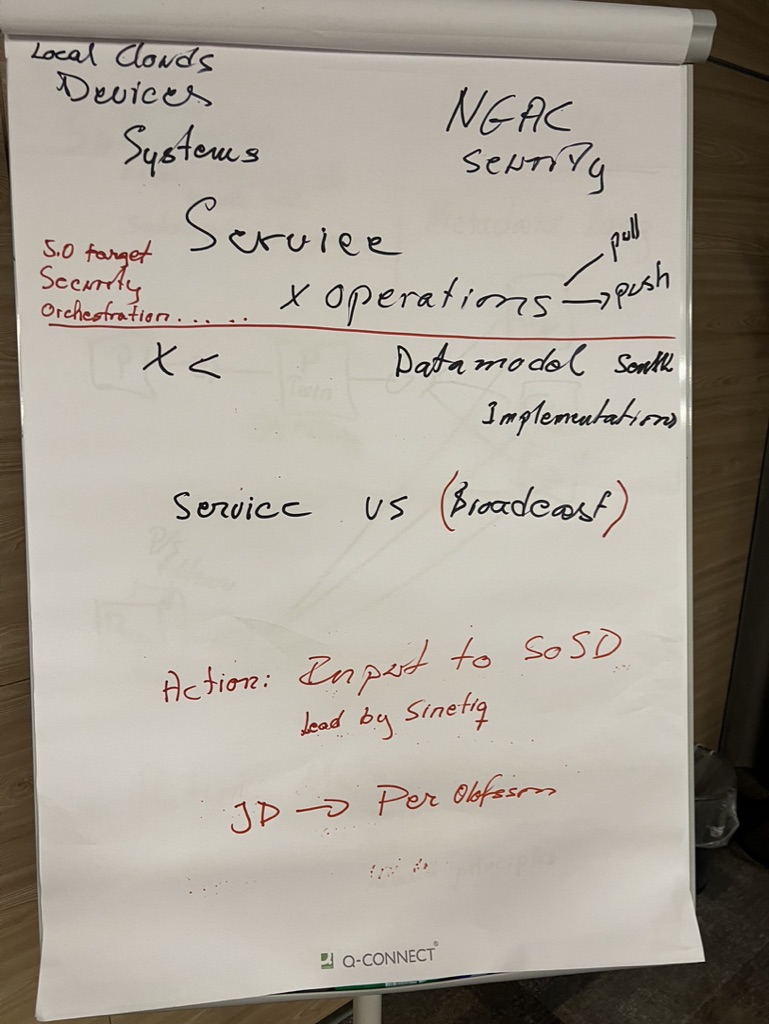 Local Clouds
Devices
Systems
NGAC
Security
Service
pull
5.0 target
Security
Orchestration.....
x operations
push
X <
Datamodel
Implementations
Service vs (Broadcast)
Action: Input to SoSD
Lead by Sinetiq
JD → Per Olofsson
Q-CONNECT®